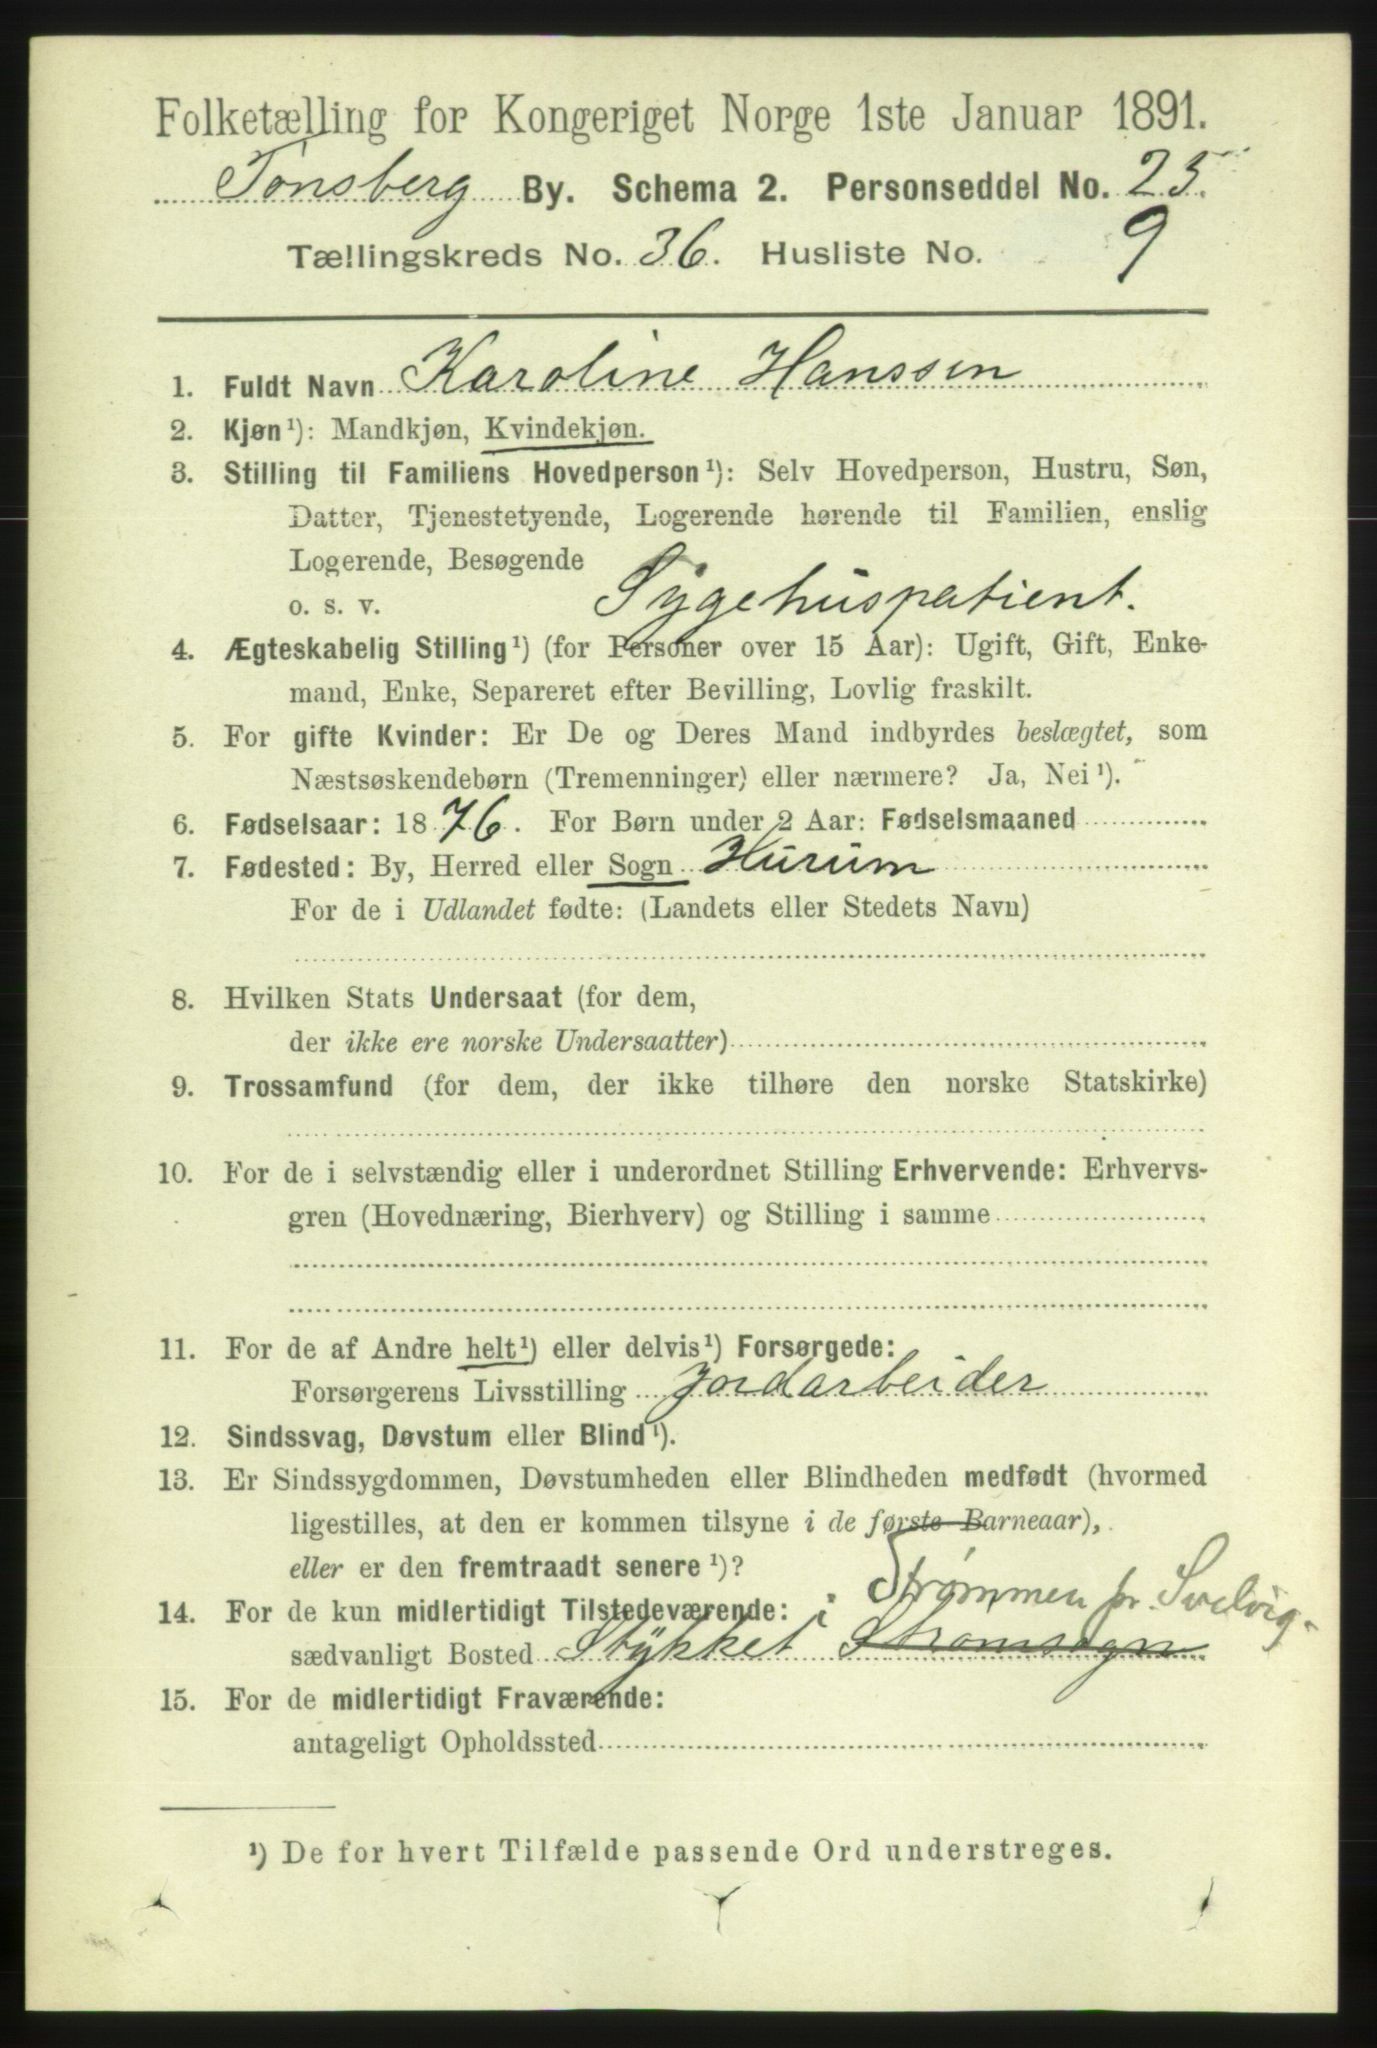 Folketælling for Kongeriget Norge 1ste Januar 1891.
Tønsberg By. Schema 2. Personseddel No. 25.
Tællingskreds No. 36. Husliste No. 9
1. Fuldt Navn Karoline Hanssen
2. Kjøn¹): Mandkjøn, Kvindekjøn.
3. Stilling til Familiens Hovedperson¹): Selv Hovedperson, Hustru, Søn,
Datter, Tjenestetyende, Logerende hørende til Familien, enslig
Logerende, Besøgende
o. s. v. Sygehuspatient.
4. Ægteskabelig Stilling¹) (for Personer over 15 Aar): Ugift, Gift, Enke-
mand, Enke, Separeret efter Bevilling, Lovlig fraskilt.
5. For gifte Kvinder: Er De og Deres Mand indbyrdes beslægtet, som
Næstsøskendebørn (Tremenninger) eller nærmere? Ja, Nei¹).
6. Fødselsaar: 1876. For Børn under 2 Aar: Fødselsmaaned
7. Fødested: By, Herred eller Sogn Hurum
For de i Udlandet fødte: (Landets eller Stedets Navn)
8. Hvilken Stats Undersaat (for dem,
der ikke ere norske Undersaatter)
9. Trossamfund (for dem, der ikke tilhøre den norske Statskirke)
10. For de i selvstændig eller i underordnet Stilling Erhvervende: Erhvervs-
gren (Hovednæring, Bierhverv) og Stilling i samme
11. For de af Andre helt¹) eller delvis¹) Forsørgede:
Forsørgerens Livsstilling Jordarbeider
12. Sindssvag, Døvstum eller Blind¹).
13. Er Sindssygdommen, Døvstumheden eller Blindheden medfødt (hvormed
ligestilles, at den er kommen tilsyne i de første Barneaar),
eller er den fremtraadt senere¹)?
14. For de kun midlertidigt Tilstedeværende: i Strømmen pr. Svelvig.
sædvanligt Bosted Stykket Strømsogn
15. For de midlertidigt Fraværende:
antageligt Opholdssted
¹) De for hvert Tilfælde passende Ord understreges.